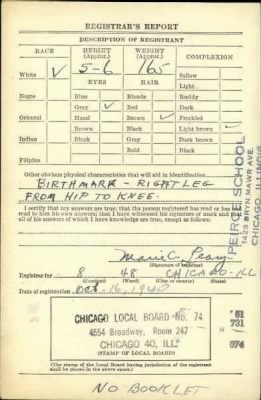 REGISTRAR'S REPORT
DESCRIPTION OF REGISTRANT
RACE HEIGHT (Approx.) WEIGHT (Approx.) COMPLEXION
5-6 165
White ✓ EYES HAIR Sallow
Light
Negro Blue Blonde Ruddy
Gray ✓ Red Dark
Oriental Hazel Brown ✓ Freckled
Brown Black Light brown ✓
Indian Black Gray Dark brown
Bald Black
Filipino
Other obvious physical characteristics that will aid in identification
BIRTHMARK - RIGHT LEG
FROM HIP TO KNEE.
I certify that my answers are true; that the person registered has read or has had
read to him his own answers; that I have witnessed his signature or mark and that
all of his answers of which I have knowledge are true, except as follows:
PEIRCE SCHOOL
1423 BRYN MAWR AVE.
CHICAGO, ILLINOIS
Marie C.
(Signature of registrar)
Registrar for 8 48 CHICAGO-ILL
(Precinct) (Ward) (City or county) (State)
Date of registration Oct. 16, 1940
CHICAGO LOCAL BOARD NO. 74
4554 Broadway, Room 247
CHICAGO 40, ILL.
(STAMP OF LOCAL BOARD)
731
074
(The stamp of the Local Board having jurisdiction of the registrant
shall be placed in the above space.)
NO BOOKLET